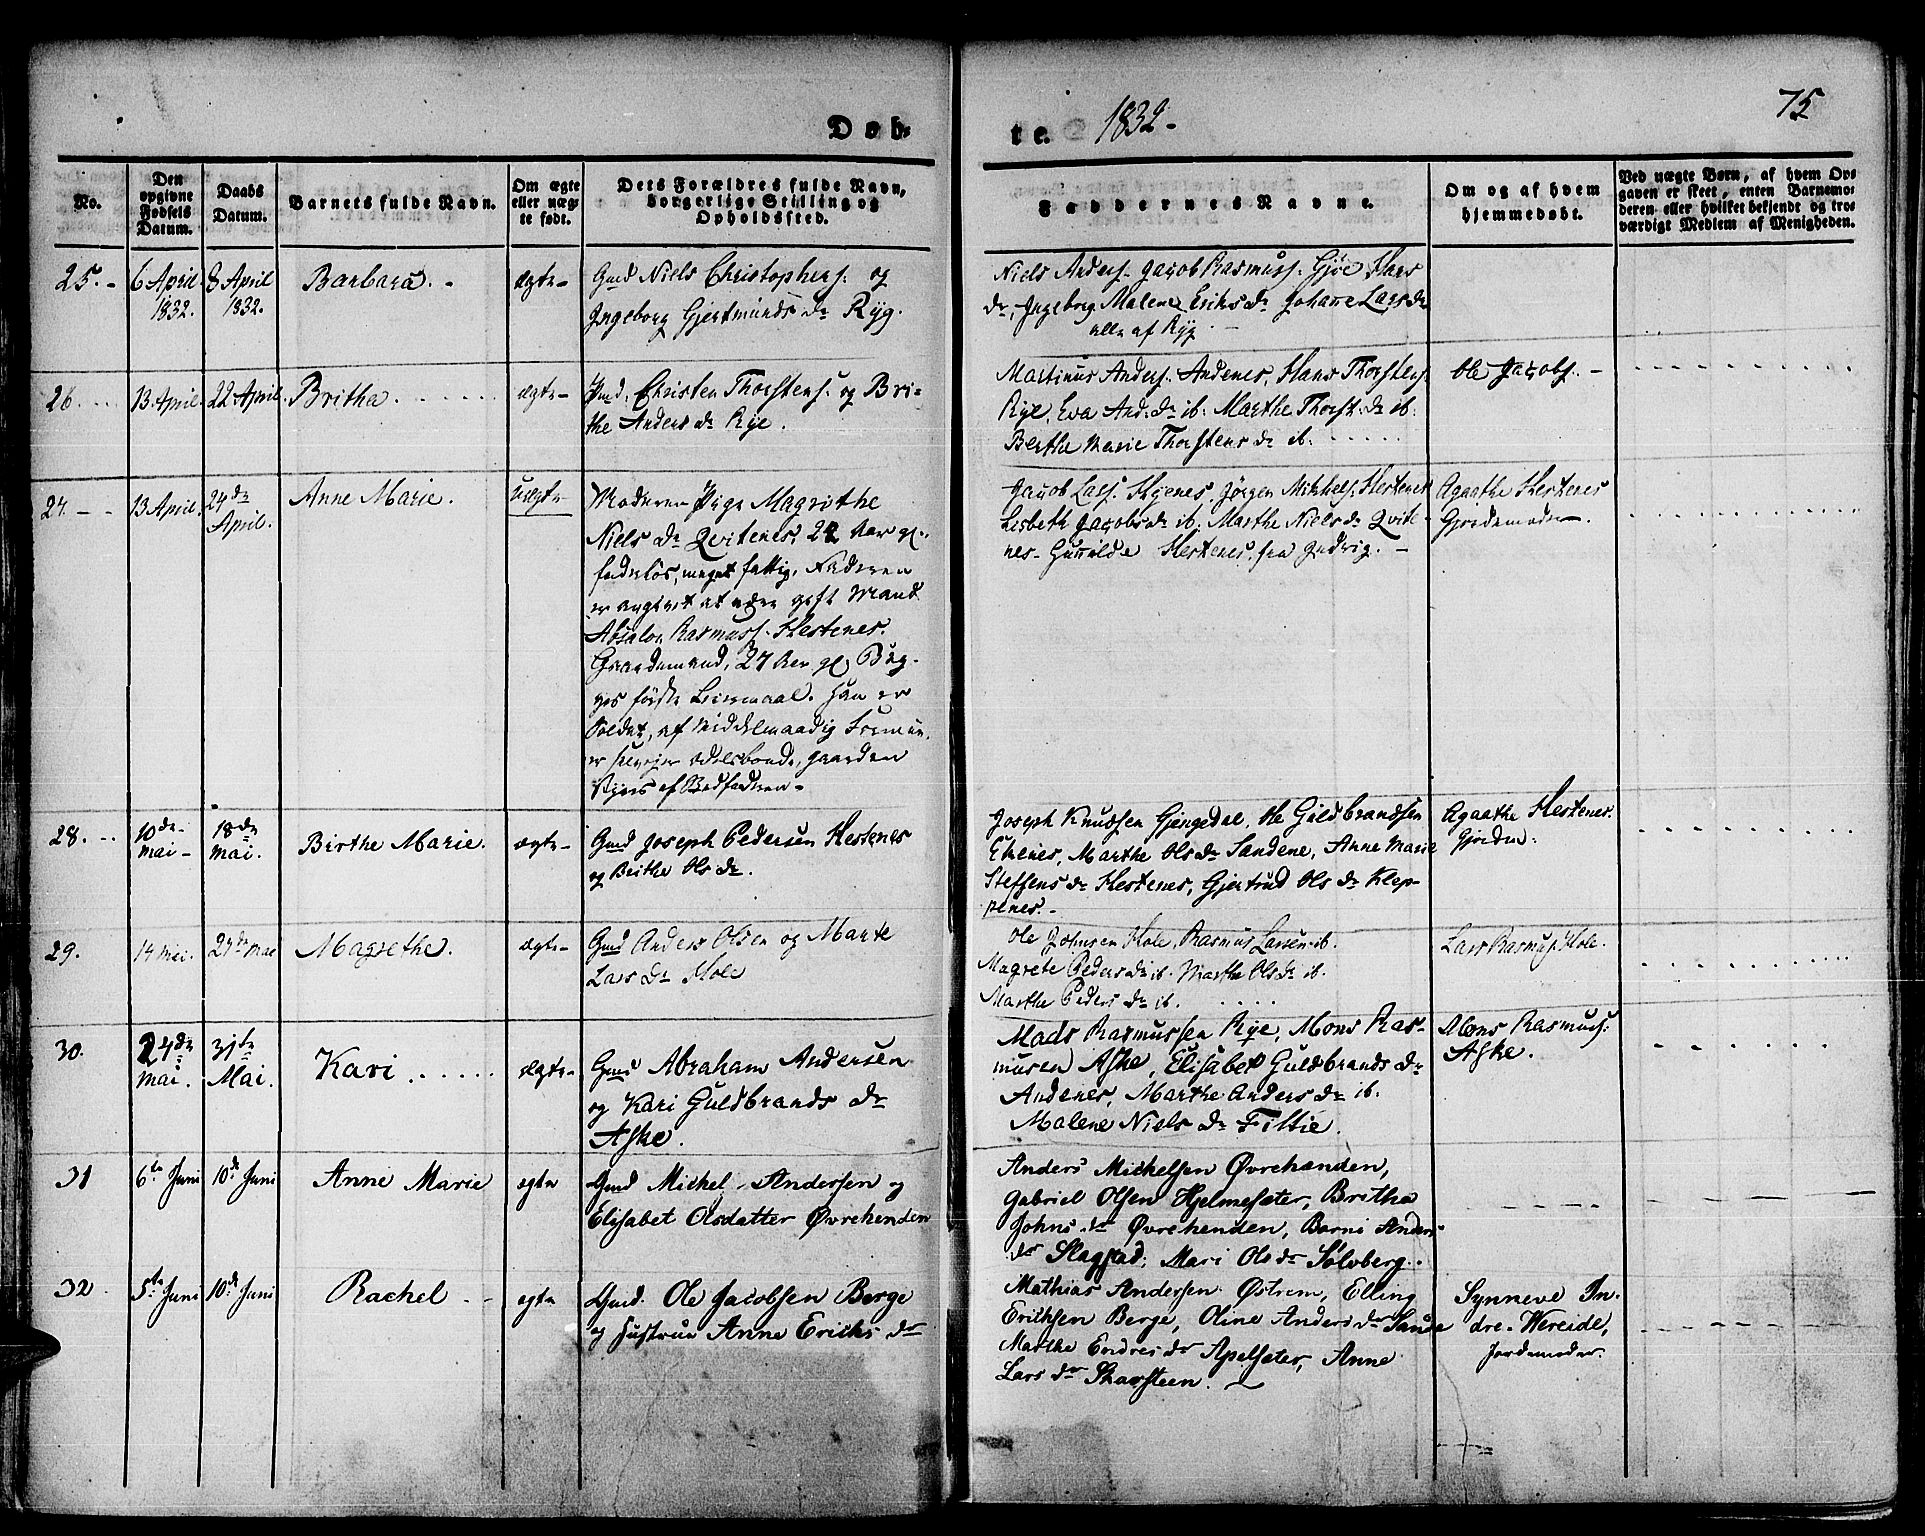 Døb-
te. 1832-
75
No.
Den
opgivne
Fødsels
Datum.
Daabs
Datum.
Barnets fulde Navn.
Om ægte
eller uæg-
te født.
Dets Forældres fulde Navn,
borgerlige Stilling og
Opholdssted.
Faddernes Navne.
Om og af hvem
hjemmedøbt.
Ved uægte Børn, af hvem Op-
gaven er skeet, enten Barnemo-
deren eller hvilket bekjendt og tro-
værdigt Medlem af Menigheden.
25.-
6 April
1832.
8 April
1832.
Barbara.-
ægte-
Gmd Niels Christophers. og
Ingeborg Gjertmunds dr Ryg.
Niels Anders. Jacob Rasmuss. Gjøe Hans
dr, Ingeborg Malene Eriks dr Johane Lars dr
alle af Ryg.-
26...
13 April.
22 April.
Britha.....
ægte-
Gmd. Christen Thorstens. og Bri-
the Anders dr Rye.
Martinus Anders. Andenes, Hans Thorstens.
Rye, Eva And. dr ib. Marthe Thorst. dr ib.
Berthe Marie Thorstens dr ib......
Ole Jacobs.-
27.--
13 April.
24de
April.
Anne Marie.
uægte-
Moderen Pige Magrethe
Niels dr Qvitenes, 22 Aar gl.
faderløs, meget fattig. Faderen
er angivet at være gift Mand
Absalon Rasmuss. Hestenes.
Gaardemand, 27 Aar gl. Beg-
ges første Leiermaal. Han er
Soldat, af middelmaadig Formue,
er odelsbonde, gaarden
eies af Bedfaderen-
Jacob Lass. Hyenes, Jørgen Mikkels. Hestenes
Lisbeth Jacobs dr ib. Marthe Niels dr Qvite-
nes- Gunilde Hestenes. fra Indvig.-
Agaathe Hestenes
Gjordemoder.
28...
10de-
Mai-
18de
Mai.
Birthe Marie.
ægte-
Gmd Joseph Pedersen Hestenes
og Brithe Ols dr.
Joseph Knudsen Gjengedal. Ole Guldbrandsen
Ekenes, Marthe Ols dr Sandene, Anne Marie
Steffens dr Hestenes, Gjertrud Ols dr Klep-
penes.-
Agaathe Hestenes.
Gjordm:
29.
14 Mai.
27de Mai
Magrethe.
ægte-
Gmd Anders Olsen og Marte
Lars dr Hole
Ole Johnsen Hole, Rasmus Larsen ib.
Magrete Peders dr ib. Marthe Ols dr ib.
Marthe Peders dr ib.....
Lars Rasmuss. Hole.
30.
24de
Mai.
31te
Mai.
Kari......
ægte-
Gmd Abraham Andersen
og Kari Guldbrands dr
Aske.
Mads Rasmussen Rye, Mons Ras-
musen Aske, Elisabet Guldbrands dr
Andenes, Marthe Anders dr ib.
Malene Niels dr Fittie.
Mons Rasmuss.
Aske.
31
6te Juni
10de Juni
Anne Marie
ægte
Gmd Michel Andersen og
Elisabet Olsdatter Øvrehenden
Anders Michelsen Øvrehanden,
Gabriel Olsen Hjelmesæter, Britha
Johns dr Øvrehenden, Barni Anders
dr Slagstad, Mari Ols dr Sølvberg.
32
5te Juni
10de Juni
Rachel
egte
Gmd. Ole Jacobsen Berge
og Hustrue Anne Erichs dr
Mathias Andersen Østrem, Elling
Erichsen Berge, Oline Anders dr Sande
Marthe Endres dr Apelsæter, Anne
Lars dr Skarsteen.
Synneve In-
dre-Hereide,
Jordemoder.